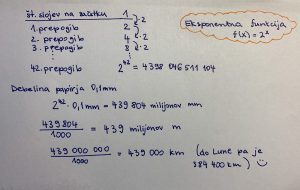 št. slojev na začetku 1
1. prepogib 2 ·2
2. prepogib 4 ·2
3. prepogib 8 ·2
42. prepogib 2⁴² = 4398 046 511 104
Eksponentna funkcija
f(x) = 2ˣ
Debelina papirja 0,1mm
2⁴² · 0,1mm = 439 804 milijonov mm
439 804 / 1000 = 439 milijonov m
439 000 000 / 1000 = 439 000 km (do Lune pa je
384 400 km) ☺